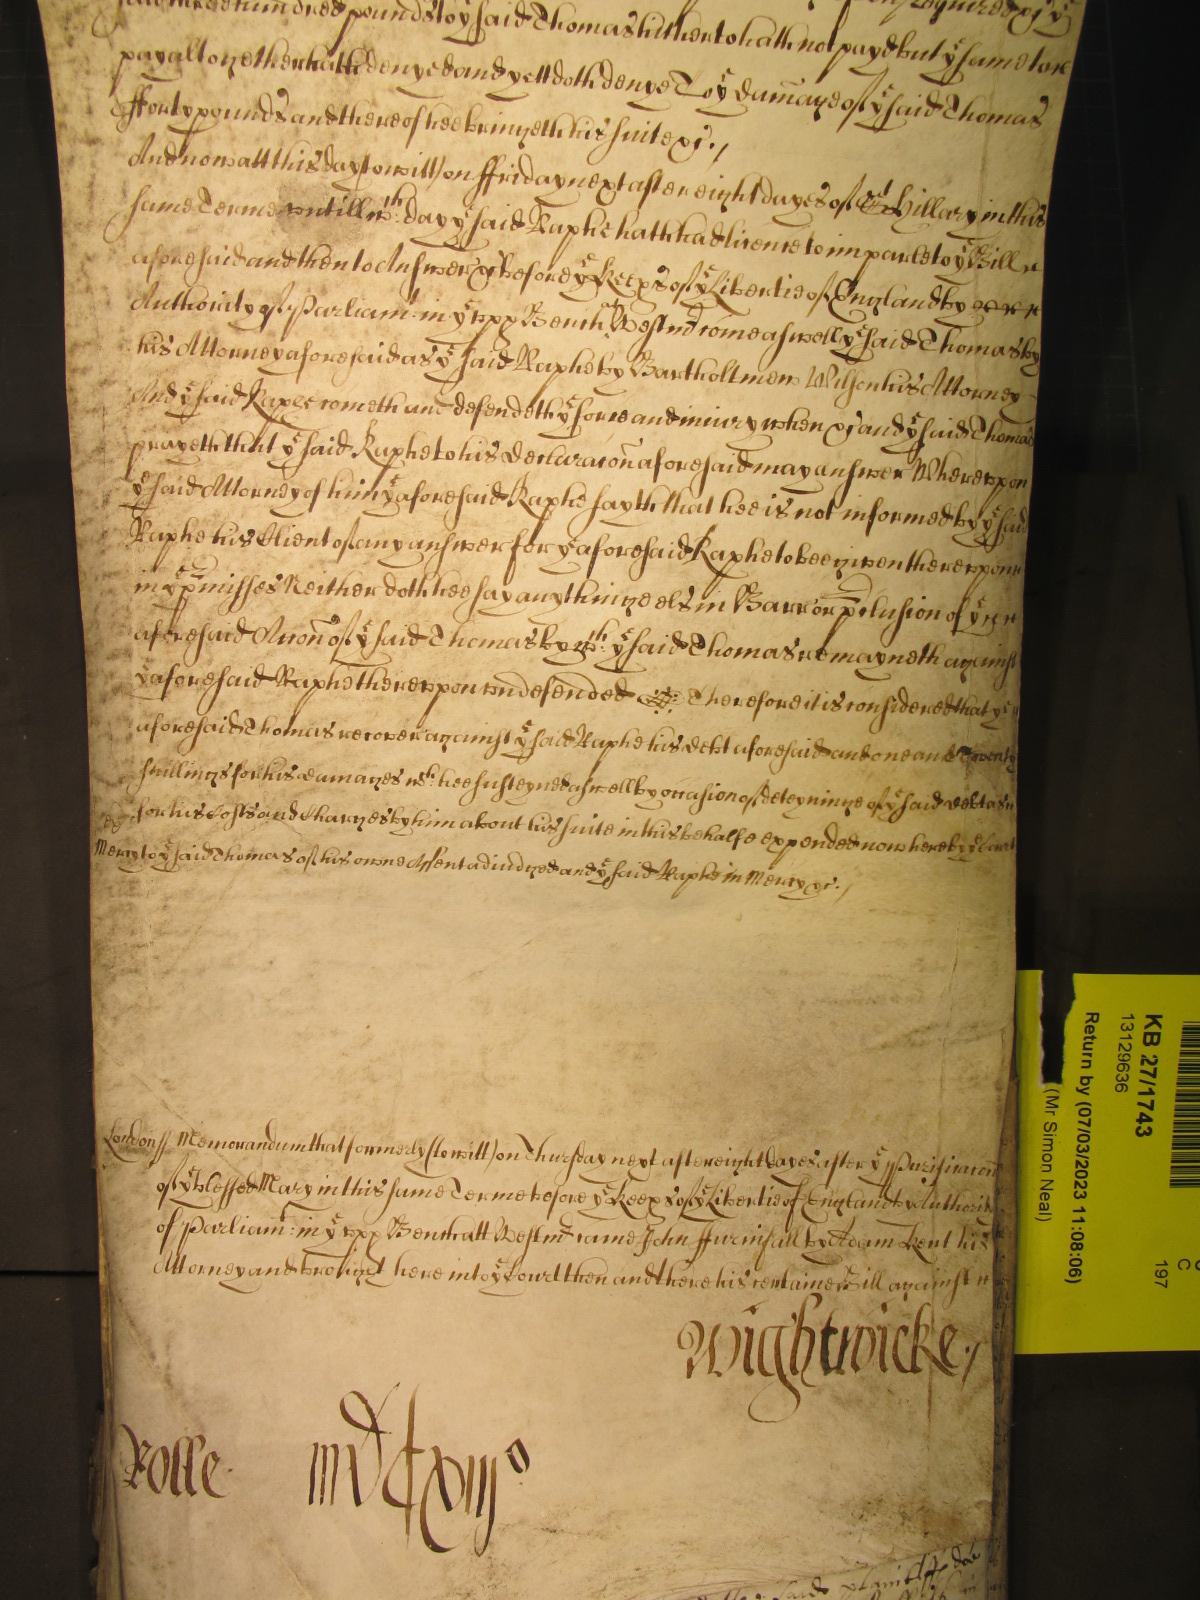 three hundred pounds to ye said Thomas hitherto hath not payd but ye same to him
pay altogether hath denyed and yett doth denye To ye damage of ye said Thomas
fforty pounds and thereof hee bringeth his suite &c.,
And now att this day (to witt) on ffriday next after eight dayes of St Hillary in this
same Terme untill wch. day ye said Raphe hath had licence to imparle to ye Bill
aforesaid and then to Answer &c before ye Keeps of ye Libertie of England by
Authority of Parliam: in ye upp Bench att Westmr come aswell ye said Thomas by
his Attorney aforesaid as ye said Raphe by Bartholmew Wilson his Attorney
And ye said Raphe cometh and defendeth ye force and iniury when &c and ye said Thomas
prayeth that ye said Raphe to his declaracon aforesaid may answer Whereupon
ye said Attorney of him ye aforesaid Raphe sayth that hee is not informed by ye said
Raphe his Client of any answer for ye aforesaid Raphe to bee given thereupon
in ye pmisses Neither doth hee say any thinge els in Barr or pclusion of ye
aforesaid Accon of ye said Thomas by wch. ye said Thomas remayneth against
ye aforesaid Raphe thereupon undefended Therefore it is considered that ye
aforesaid Thomas recover against ye said Raphe his debt aforesaid and one and Twenty
shillings for his damages wch. hee susteyned aswell by occasion of deteyninge of ye said debt as
for his Costs and Charges by him about his suite in this behalfe expended now here by ye Court
Mercy to ye said Thomas of his owne Assent adiudged and ye said Raphe in Mercy &c.,
London ss Memorandum that formerly (to witt) on Thursday next after eight dayes after ye Purificacon
of ye blessed Mary in this same Terme before ye Keeps of ye Libertie of England by Authority
of Parliamt: in ye upp Bench att Westmr came John ffurnsall by Adam Kent his
Attorney and brought here into ye Court then and there his certaine Bill against
Wightwicke.,
Rolle mDCxiijo
said plaintiff doe
KB 27/1743
13129636
Return by (07/03/2023 11:08:06)
(Mr Simon Neal)
C
197